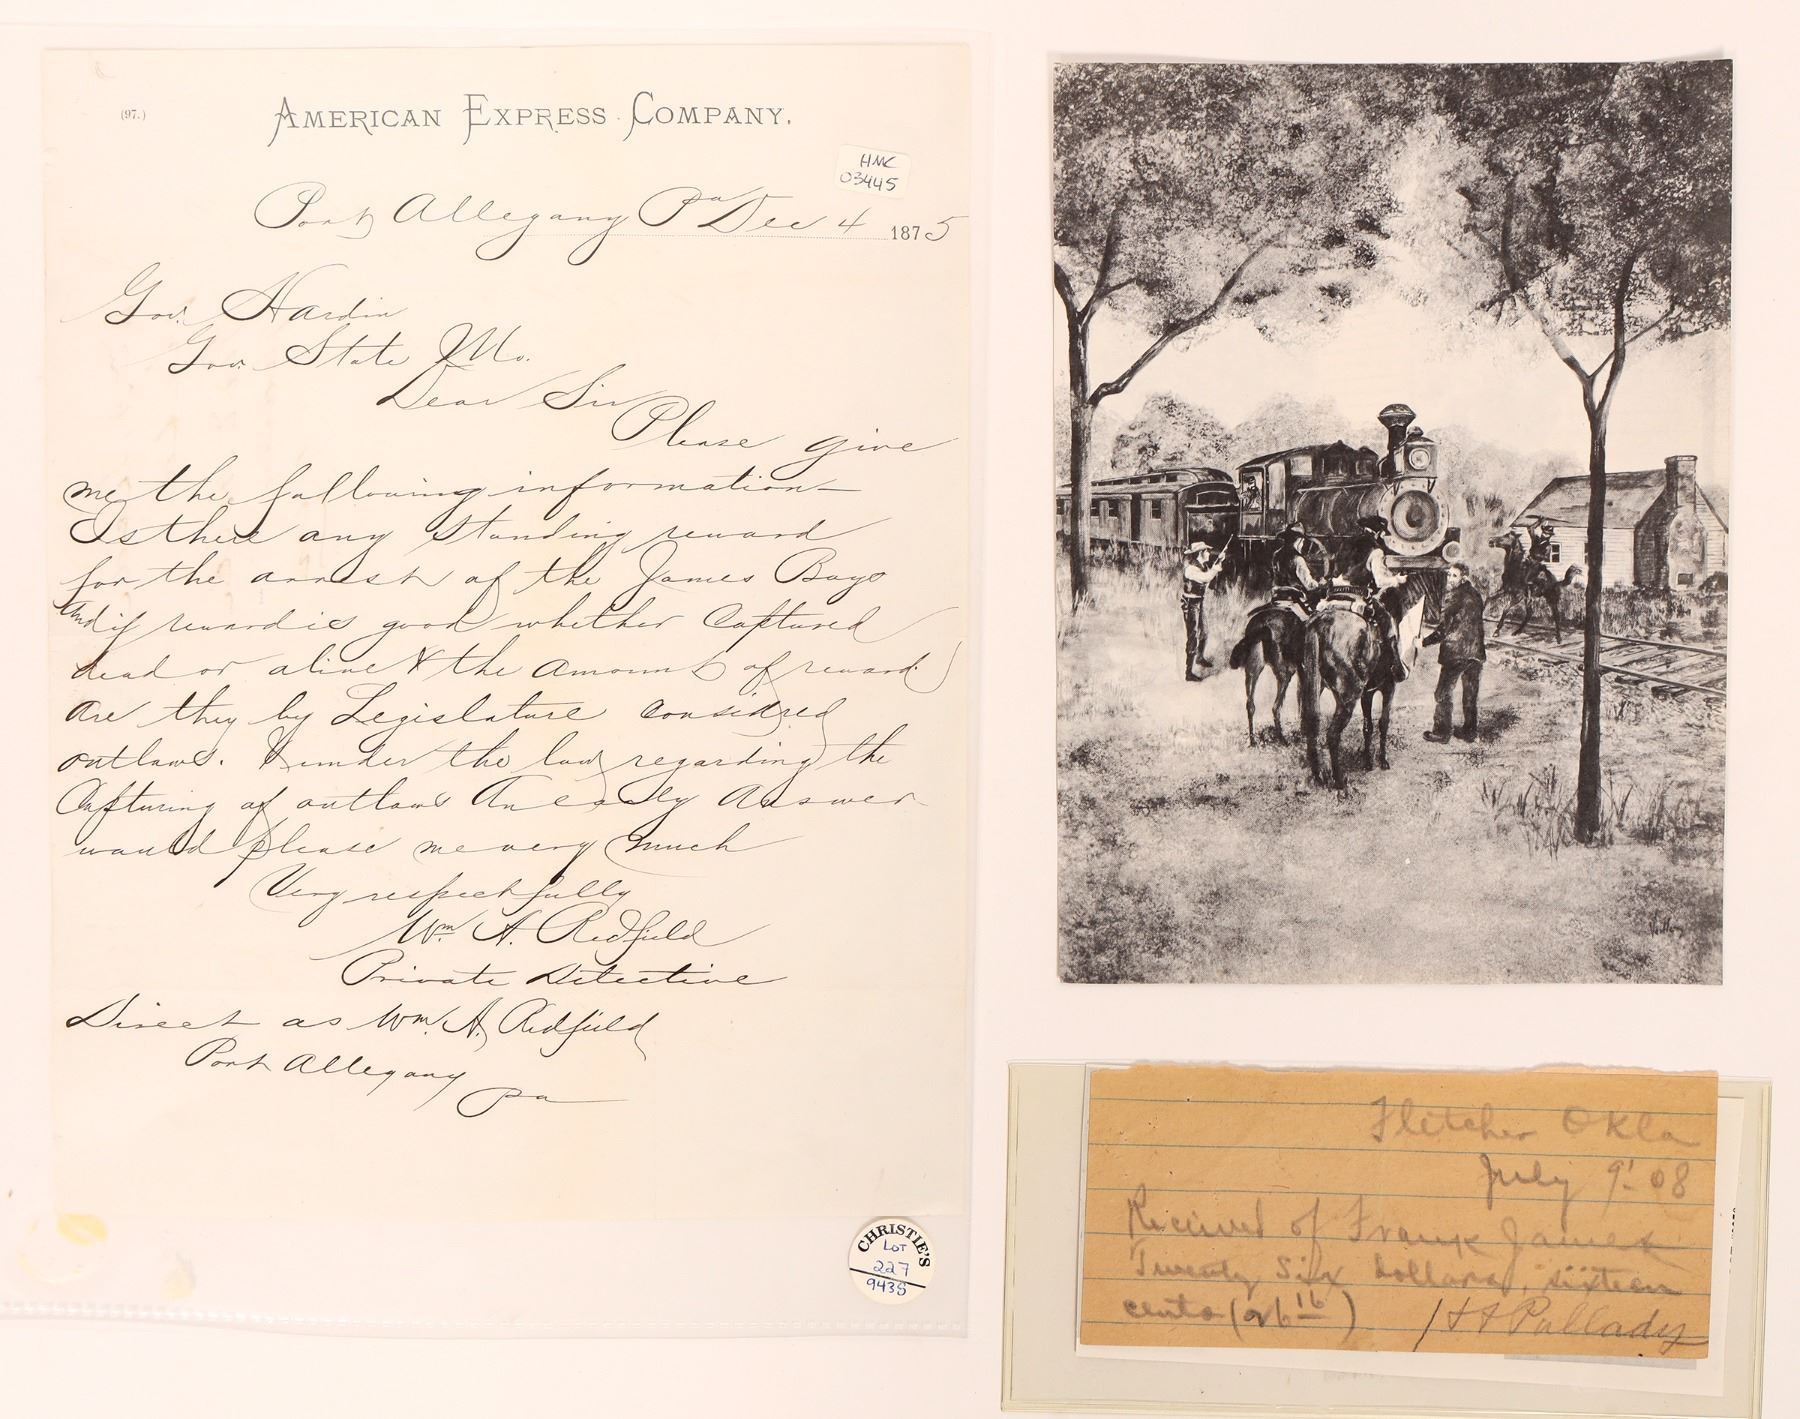 (97.)
AMERICAN EXPRESS COMPANY.
HMC
03445
Port Allegany Pa Dec 4 1875
Gov. Hardin
Gov. State Mo.
Dear Sir
Please give
me the following information
Is there any standing reward
for the arrest of the James Boys
and if reward is good whether captured
dead or alive & the amount of reward.
are they by Legislature considred
outlaws. & under the law regarding the
Capturing of outlaws An early answer
would please me very much
Very respectfully
Wm A. Redfield
Private Detective
Direct as Wm. A. Redfield
Port Allegany
Pa
CHRISTIE'S
LOT
227
9438
Fletcher Okla
July 9' 08
Received of Frank James
Twenty Six Dollars, sixteen
cents (26 16)
Pallady